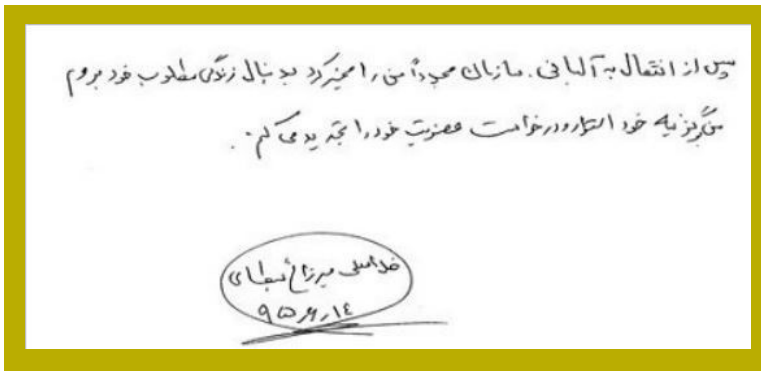 پس از انتقال به آلبانی. سازمان مجدداً من را مخیر کرد به دنبال زندگی مطلوب خود بروم
من گزینه خود استمرار و درخواست عضویت خود را تجدید می کنم.
میرزائی
۹۵٫۶٫۱٤